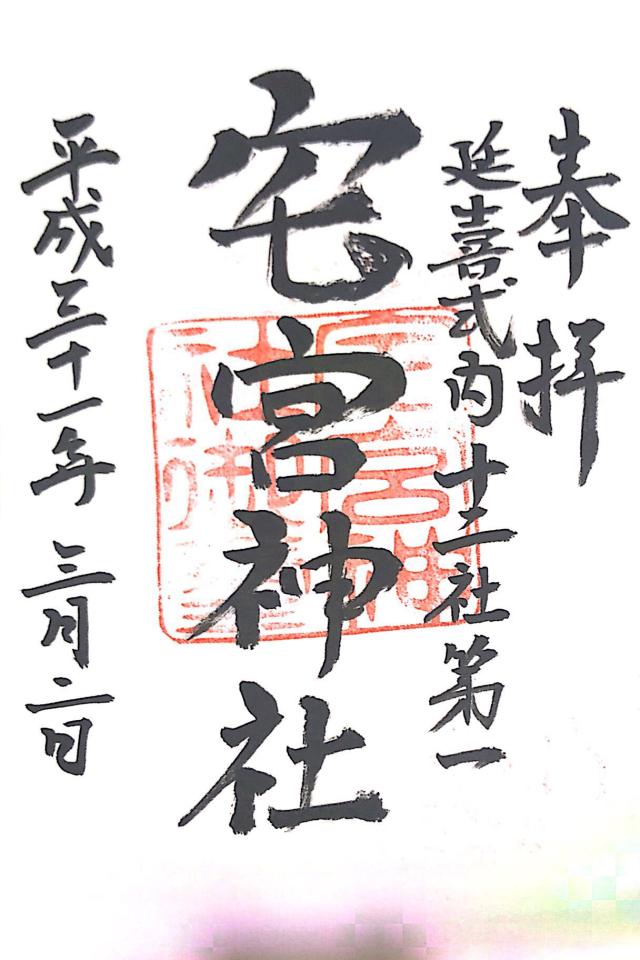 奉拝
延喜式内十二社第一
宅宮神社
平成三十一年三月二日